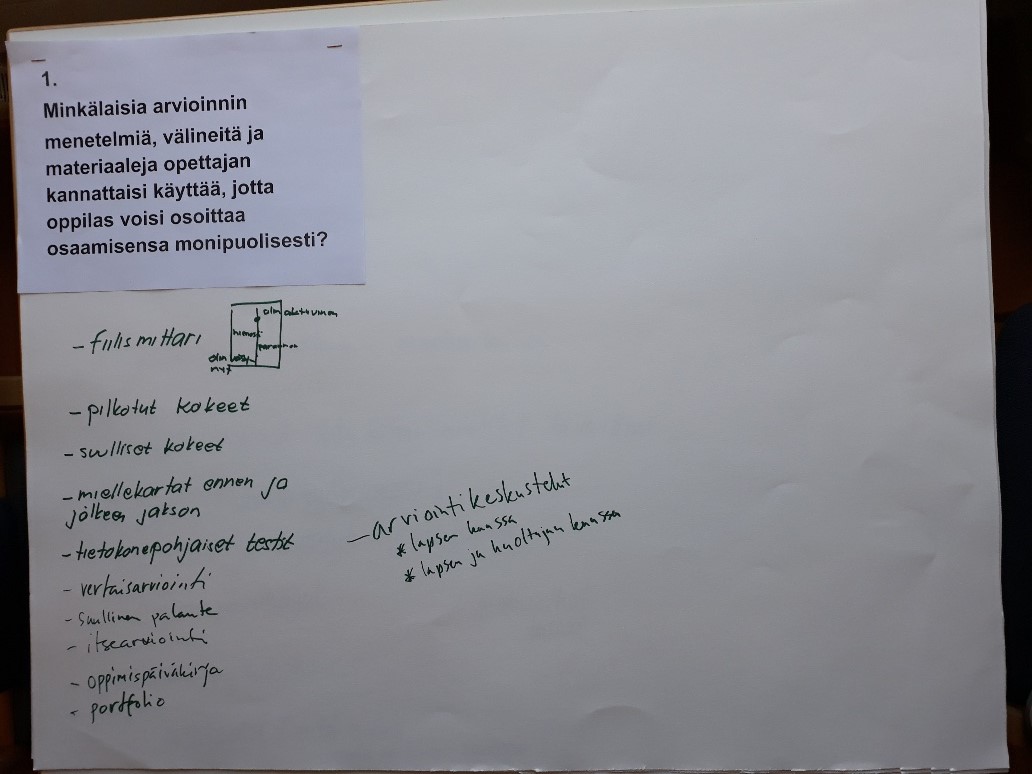 1.
Minkälaisia arvioinnin
menetelmiä, välineitä ja
materiaaleja opettajan
kannattaisi käyttää, jotta
oppilas voisi osoittaa
osaamisensa monipuolisesti?
- fiilismittari
- pilkotut kokeet
- suulliset kokeet
- miellekartat ennen ja
jälkeen jakson
- tietokonepohjaiset testit
- vertaisarviointi
- suullinen palaute
- itsearviointi
- oppimispäiväkirja
- portfolio
- arviointikeskustelut
* lapsen kanssa
* lapsen ja huoltajan kanssa